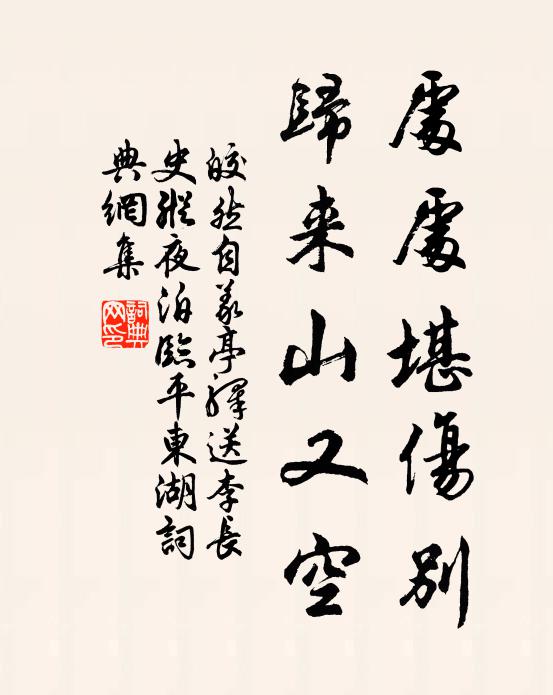 處處堪傷别
歸来山又空
皎然自義亭驛送李長
史縱夜泊臨平東湖詞
典網集
詞典
网印